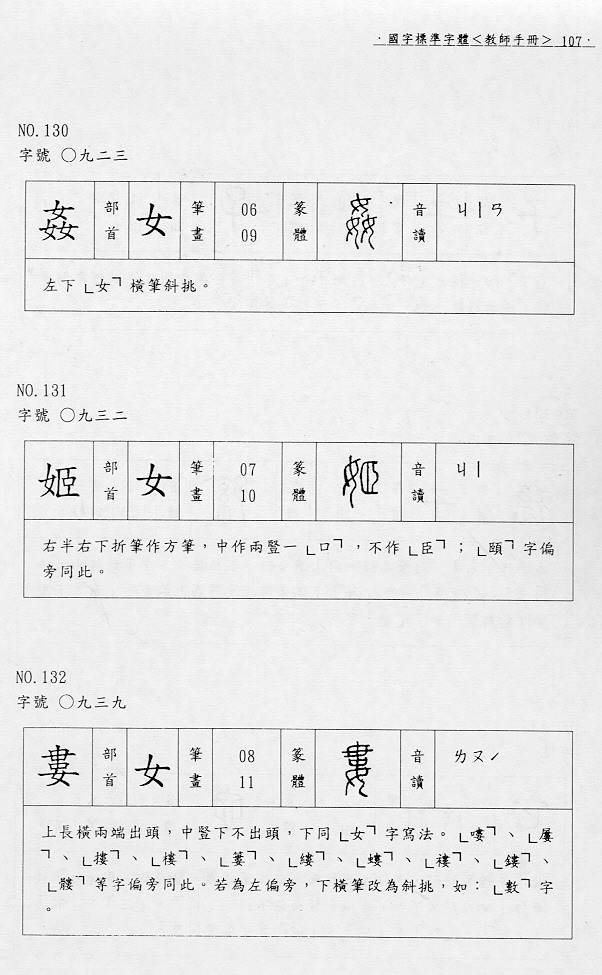 ·國字標準字體<教師手冊> 107·
NO.130
字號 〇九二三
姦 部首 女 筆畫 06 09 篆體 姦 音讀 ㄐㄧㄢ
左下「女」橫筆斜挑。
NO.131
字號 〇九三二
姬 部首 女 筆畫 07 10 篆體 姬 音讀 ㄐㄧ
右半右下折筆作方筆,中作兩豎一「口」,不作「臣」;「頤」字偏
旁同此。
NO.132
字號 〇九三九
婁 部首 女 筆畫 08 11 篆體 婁 音讀 ㄌㄡˊ
上長橫兩端出頭,中豎下不出頭,下同「女」字寫法。「嘍」、「屢
」、「摟」、「樓」、「簍」、「縷」、「螻」、「褸」、「鏤」、
「髏」等字偏旁同此。若為左偏旁,下橫筆改為斜挑,如:「數」字
。